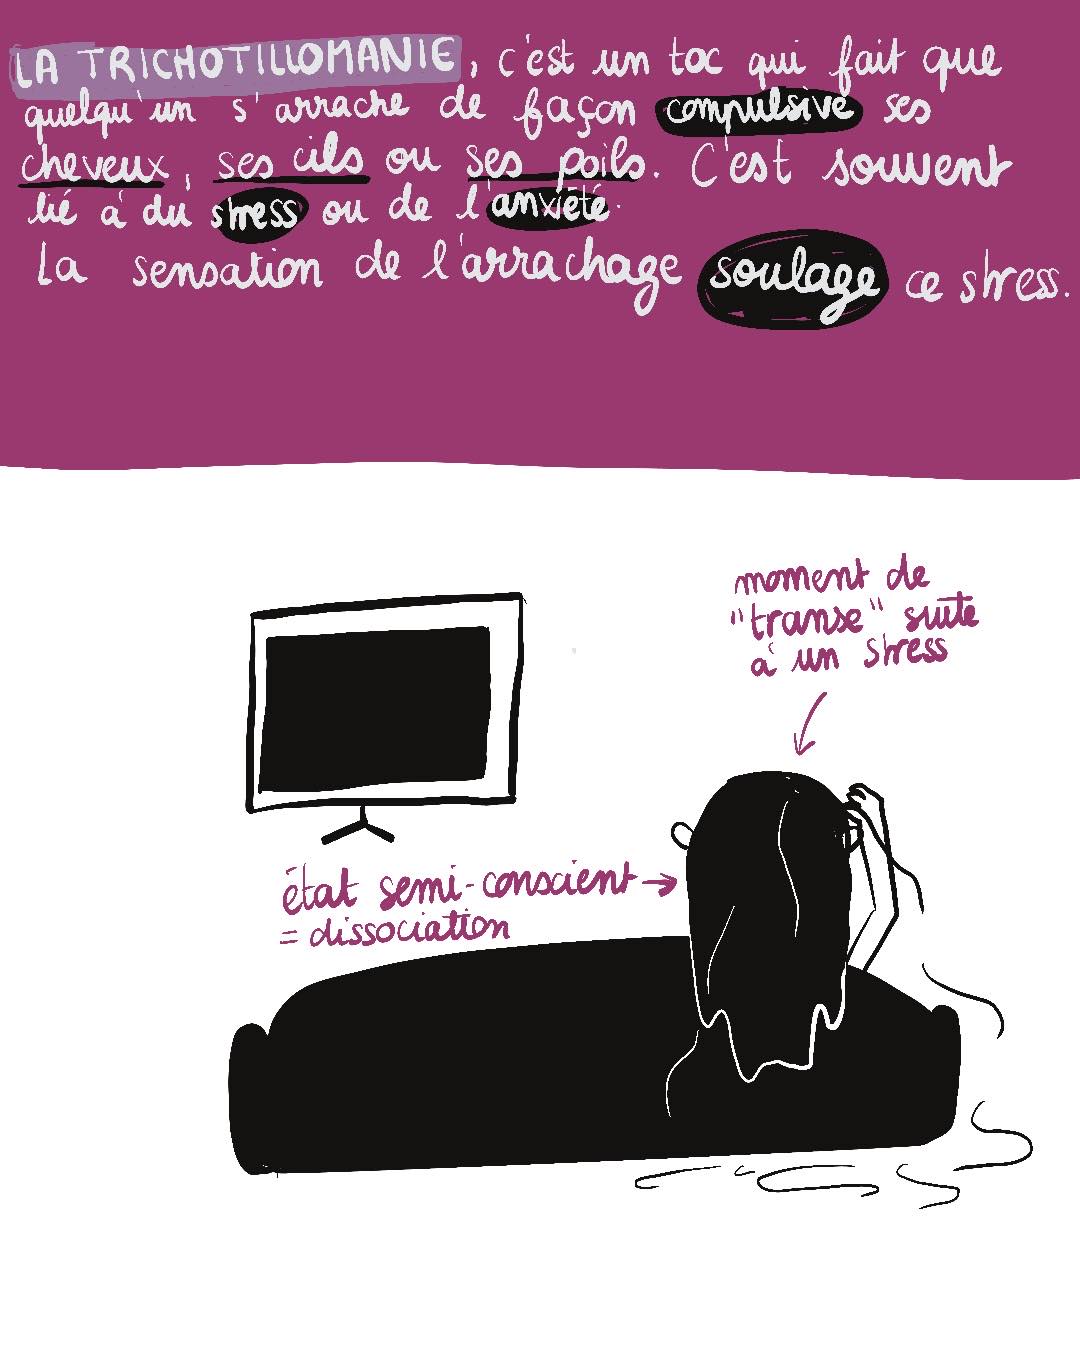 LA TRICHOTILLOMANIE, c'est un toc qui fait que
quelqu'un s'arrache de façon compulsive ses
cheveux, ses cils ou ses poils. C'est souvent
lié à du stress ou de l'anxiété.
La sensation de l'arrachage soulage ce stress.
moment de
"transe" suite
à un stress
état semi-conscient →
= dissociation